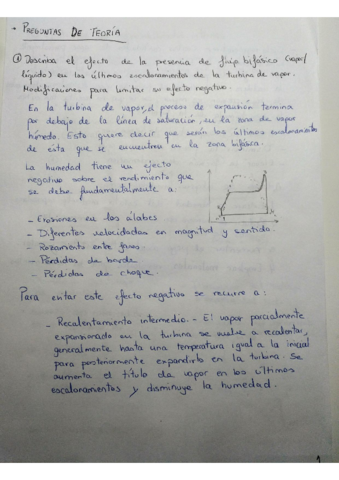 → PREGUNTAS DE TEORÍA
① Describa el efecto de la presencia de flujo bifásico (vapor/
líquido) en los últimos escalonamientos de la turbina de vapor.
Modificaciones para limitar su efecto negativo.
En la turbina de vapor, el proceso de expansión termina
por debajo de la línea de saturación, en la zona de vapor
húmedo. Esto quiere decir que serán los últimos escalonamientos
de ésta que se encuentran en la zona bifásica.
La humedad tiene un efecto
negativo sobre el rendimiento que
se debe fundamentalmente a:
- Erosiones en los álabes
- Diferentes velocidades en magnitud y sentido.
- Rozamiento entre fases.
- Pérdidas de borde
- Pérdidas de choque.
Para evitar este efecto negativo se recurre a:
- Recalentamiento intermedio. - El vapor parcialmente
expansionado en la turbina se vuelve a recalentar,
generalmente hasta una temperatura igual a la inicial
para posteriormente expandirlo en la turbina. Se
aumenta el título de vapor en los últimos
escalonamientos y disminuye la humedad.
1